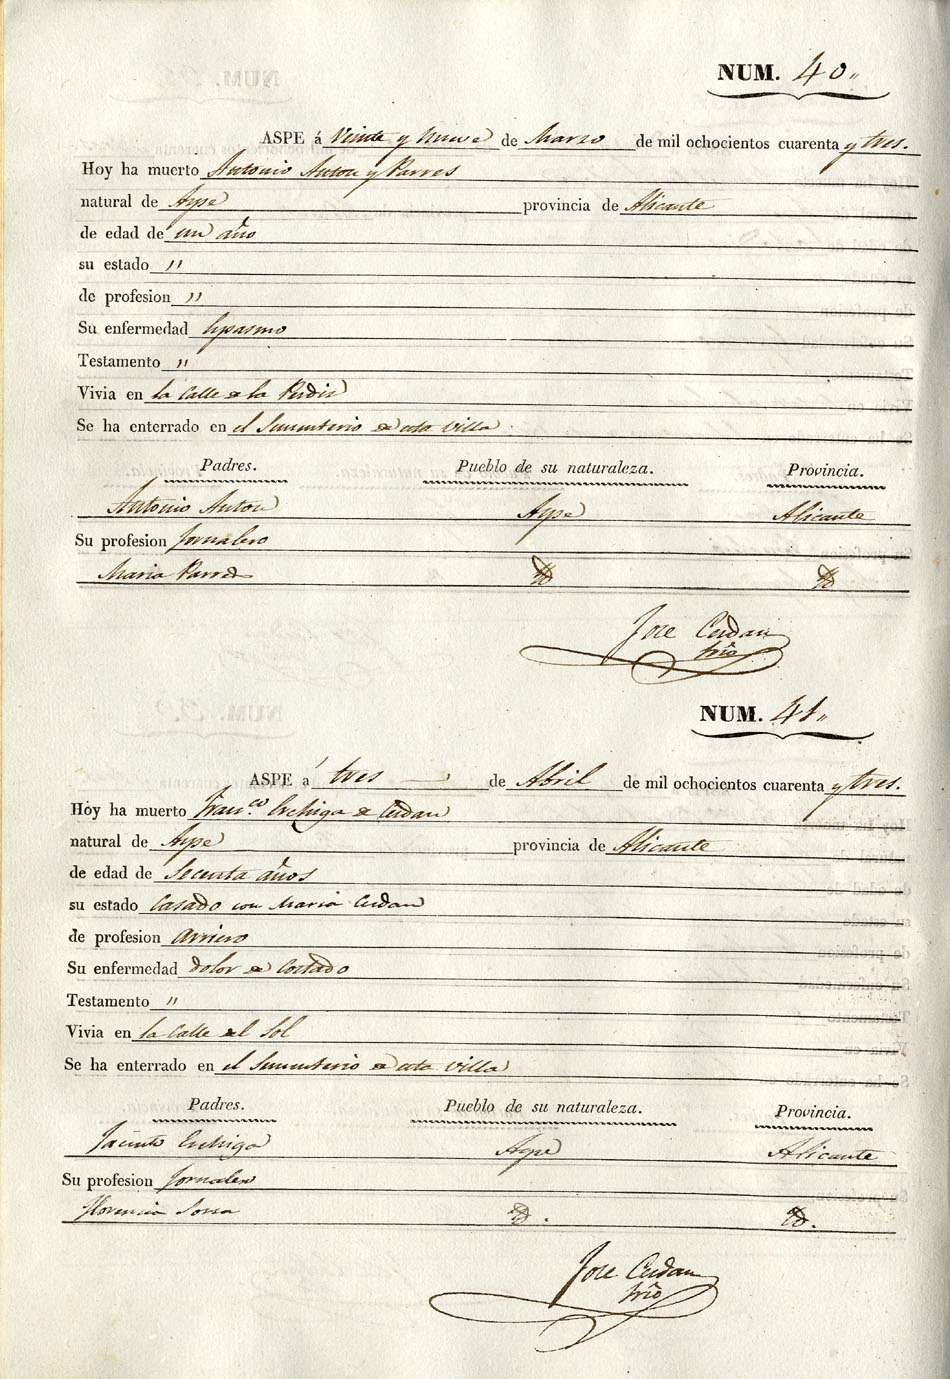 NUM. 40,,
ASPE á Veinte y nueve de Marzo de mil ochocientos cuarenta y tres.
Hoy ha muerto Antonio Anton y Parres
natural de Aspe provincia de Alicante
de edad de un año
su estado ,,
de profesion ,,
Su enfermedad Espasmo
Testamento ,,
Vivia en la Calle de la
Se ha enterrado en el Sementerio de esta villa
Padres. Pueblo de su naturaleza. Provincia.
Antonio Anton Aspe Alicante
Su profesion Jornalero
Maria Parres Yd Yd
Jose Cerdan
srio
NUM. 41,,
ASPE á tres de Abril de mil ochocientos cuarenta y tres.
Hoy ha muerto Franco. de Cerdan
natural de Aspe provincia de Alicante
de edad de Secenta años
su estado Casado con Maria Cerdan
de profesion Arriero
Su enfermedad dolor de Costado
Testamento ,,
Vivia en la Calle del Sol
Se ha enterrado en el Sementerio de esta villa
Padres. Pueblo de su naturaleza. Provincia.
Jacinto Aspe Alicante
Su profesion Jornalero
Florencia Yd. Yd.
Jose Cerdan
srio